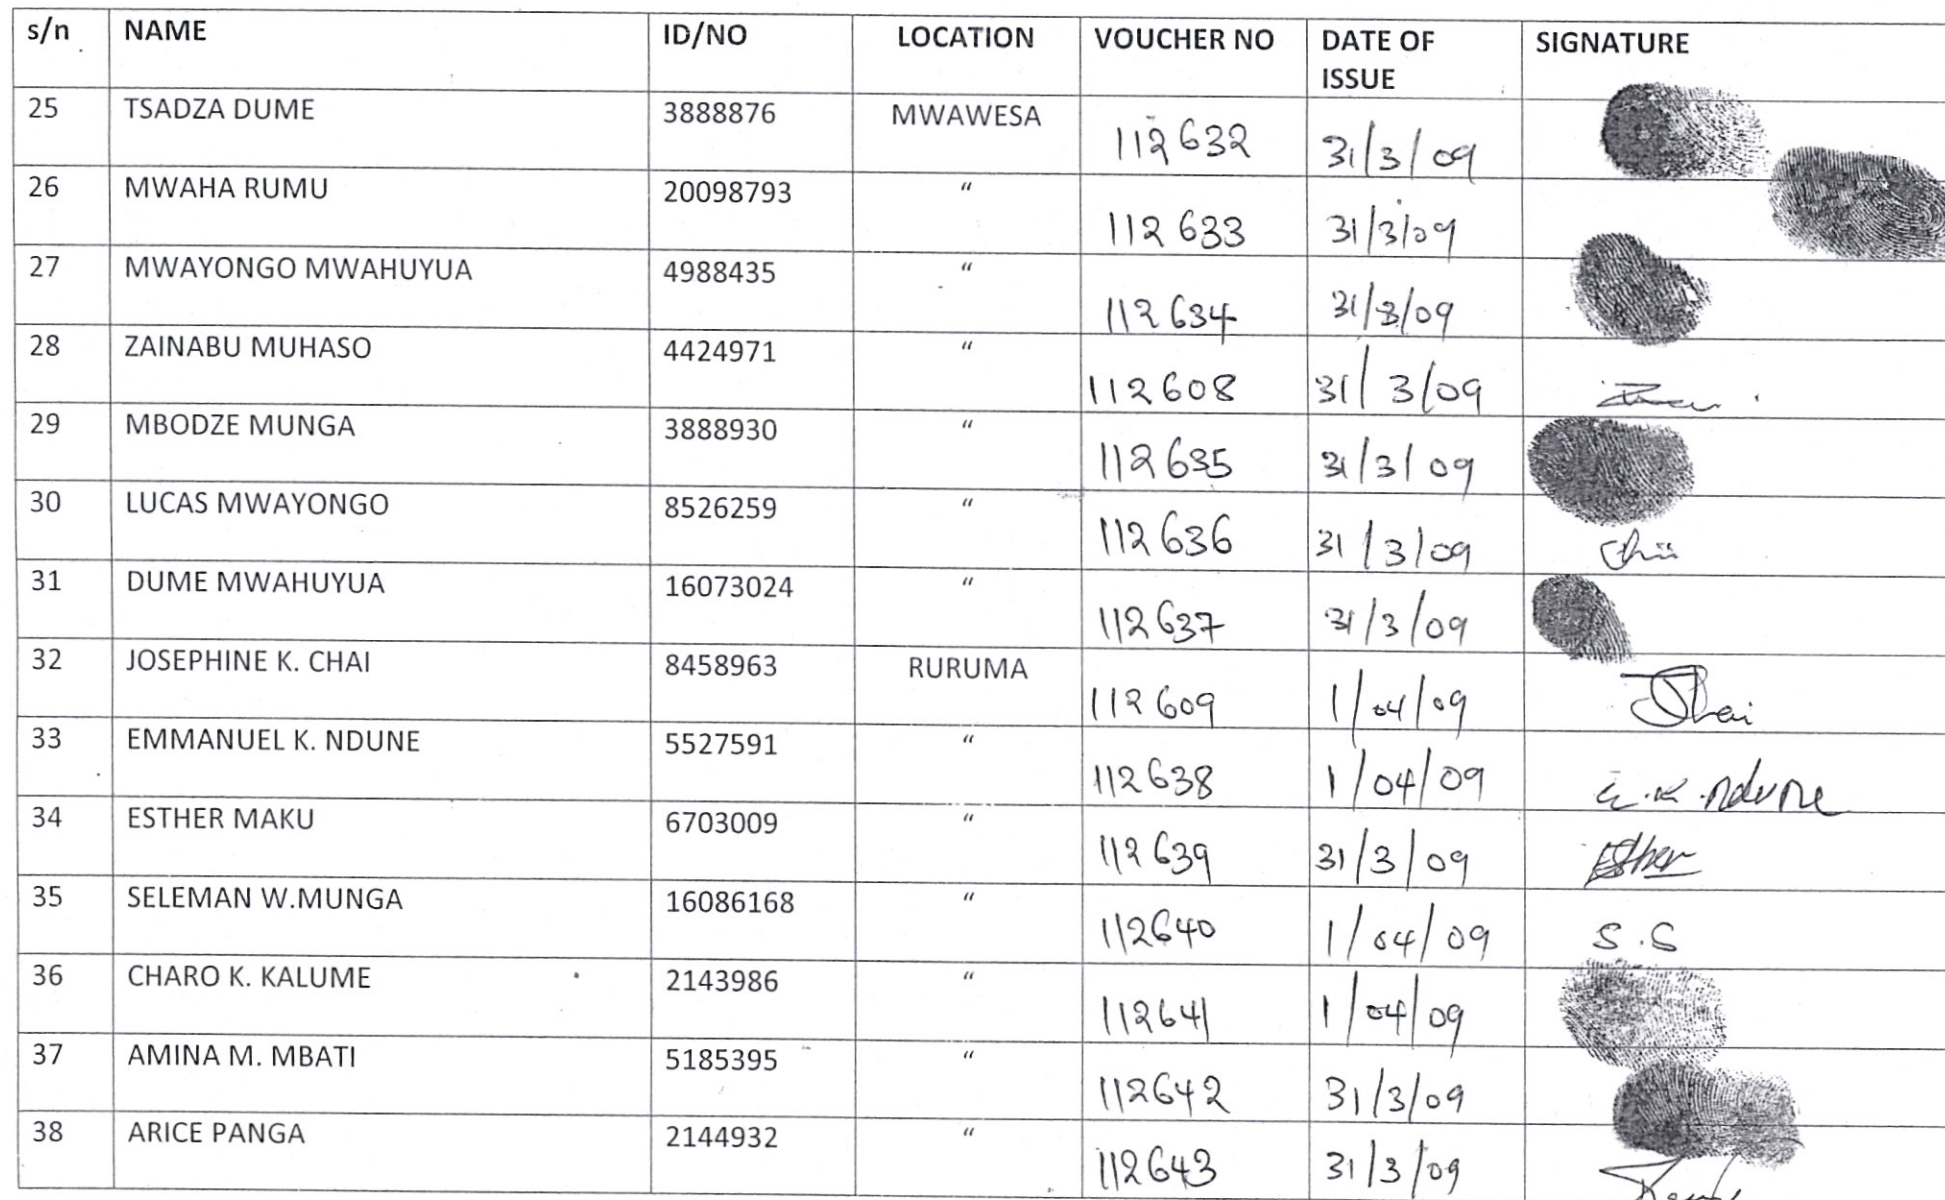 s/n NAME ID/NO LOCATION VOUCHER NO DATE OF ISSUE SIGNATURE
25 TSADZA DUME 3888876 MWAWESA 112632 31/3/09
26 MWAHA RUMU 20098793 " 112633 31/3/09
27 MWAYONGO MWAHUYUA 4988435 " 112634 31/3/09
28 ZAINABU MUHASO 4424971 " 112608 31/3/09
29 MBODZE MUNGA 3888930 " 112635 31/3/09
30 LUCAS MWAYONGO 8526259 " 112636 31/3/09
31 DUME MWAHUYUA 16073024 " 112637 31/3/09
32 JOSEPHINE K. CHAI 8458963 RURUMA 112609 1/04/09
33 EMMANUEL K. NDUNE 5527591 " 112638 1/04/09 E.K.Ndune
34 ESTHER MAKU 6703009 " 112639 31/3/09 Esther
35 SELEMAN W.MUNGA 16086168 " 112640 1/04/09 S.S
36 CHARO K. KALUME 2143986 " 112641 1/04/09
37 AMINA M. MBATI 5185395 " 112642 31/3/09
38 ARICE PANGA 2144932 " 112643 31/3/09